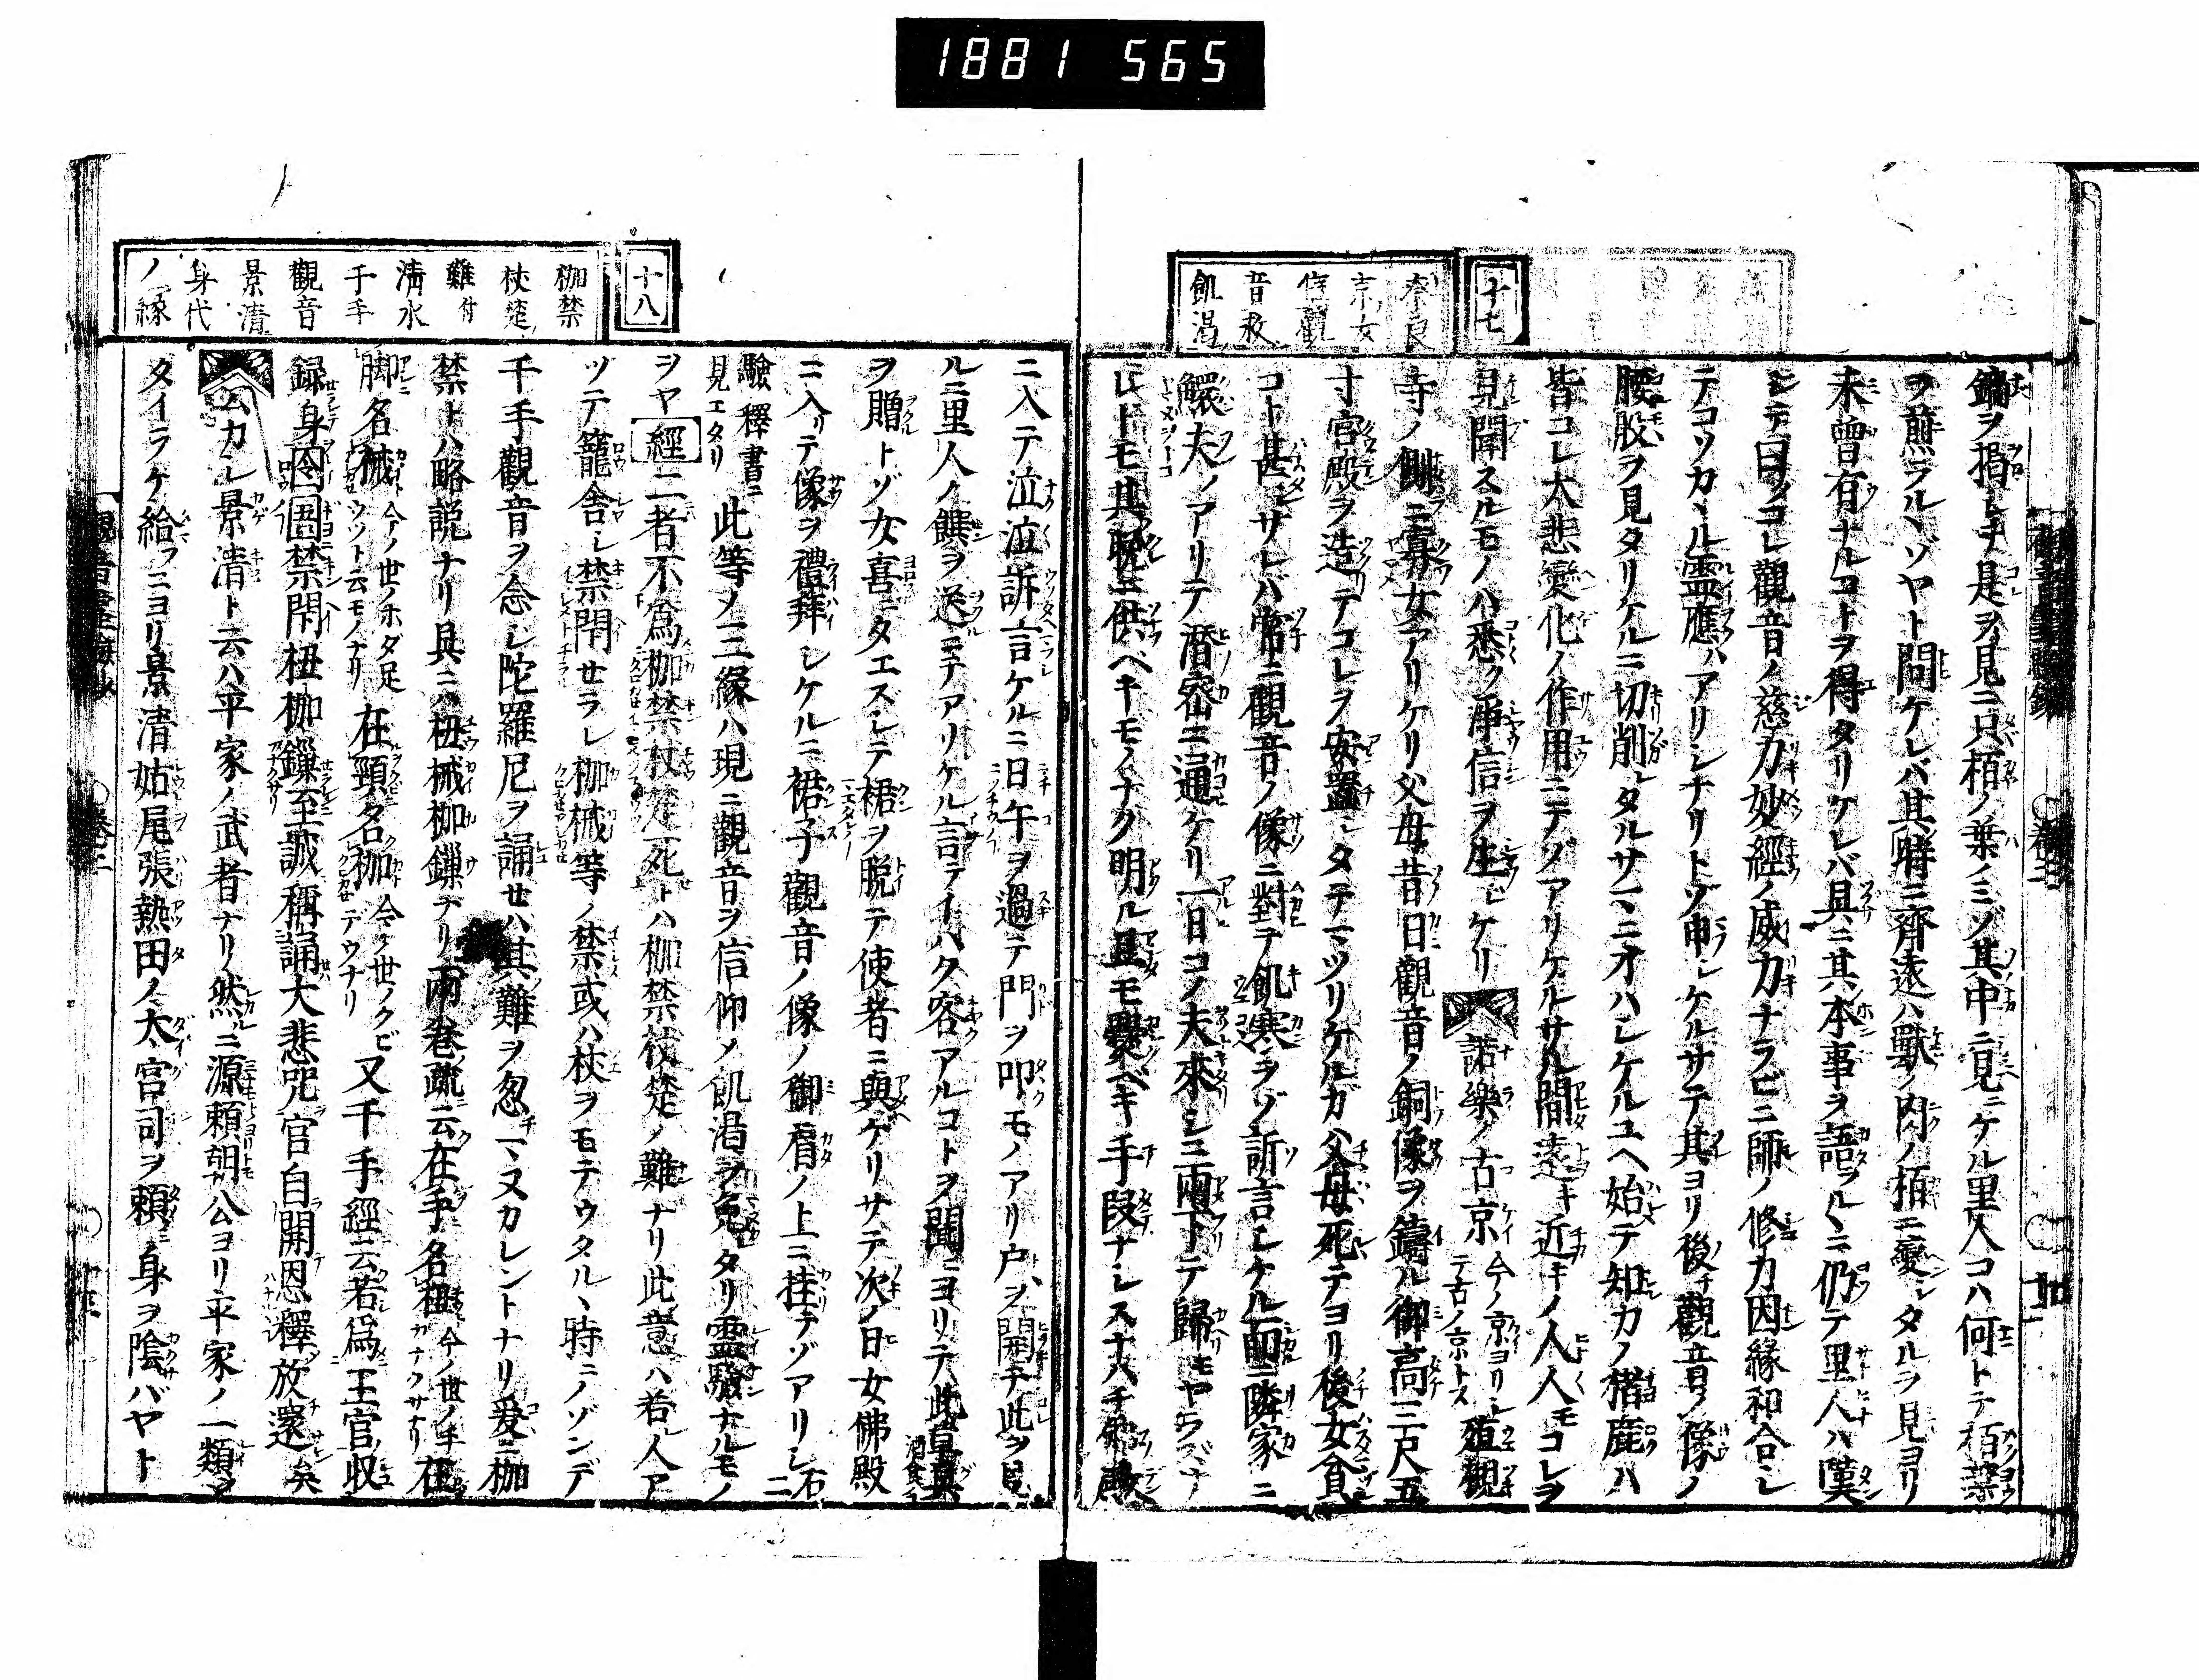 1881 565
十七
奈良
京女
信觀
音救
飢渇
鍋ヲ掲レチ是ヲ見ニ只栢ノ葉ノミゾ其中ニ見ニケル里人コハ何トテ栢葉
ヲ煎ラルヽゾヤト問ケレバ其時ニ齊遠ハ獸ノ肉ノ栢ニ變シタルヲ見ヨリ
未曾有ナルコトヲ得タリケレバ具ニ其本事ヲ語ルヽニ仍テ里人ハ漢
シテ曰コレ觀音ノ慈力妙經ノ威力ナラビニ師ノ修力因緣和合シ
テコソカヽル靈應ハアリシナリトゾ申シケルサテ其ヨリ後チ觀音ノ像ノ
腰股ヲ見タリケルニ切削レタルサマニオハレケルユヘ始テ知カノ猪鹿ハ
皆コレ大悲變化ノ作用ニテゾアリケルサル間遠キ近キノ人人モコレヲ
見聞スルモノハ悉ク淨信ヲ生シケリ 諾樂ノ古京 今ノ京ヨリシテ古ノ京トス 殖槻
寺ノ側ニ寡女アリケリ父母昔日觀音ノ銅像ヲ鑄ル御高三尺五
寸宮殿ヲ造テコレヲ安置シタテマツリケルカ父母死テヨリ後女貧
コト甚シサレバ常ニ觀音ノ像ニ對テ飢寒ヲゾ訴言シケル爾ニ隣家ニ
鰥夫ノアリテ潛密ニ通ケリ一日コノ夫來シ三兩下テ歸モヤラズナ
レトモ其耽ニ供ベキモノナク明ル旦モ爨ベキ手段ナシスナハチ佛殿
十八
枷禁
杖楚
難付
淸水
千手
觀音
景清
身代
ノ縁
ニ入テ泣泣訴言ケルニ日午ヲ過テ門ヲ叩モノアリ戸ヲ開チ此ヲ見
ルニ里人ノ饌ヲ送ニテアリケル言テイハク客アルコトヲ聞ヨリテ此皇具
ヲ贈トゾ女喜ニタエズシテ裙ヲ脱テ使者ニ與ケリサテ次ノ日女佛殿
ニ入リテ像ヲ禮拜シケルニ裙子觀音ノ像ノ御肩ノ上ニ挂テゾアリシ 右二
驗釋書ニ見エタリ 此等ノ三緣ハ現ニ觀音ヲ信仰ノ飢渇ヲ免タリ靈驗ナルモノ
ヲヤ 經 二者不爲枷禁杖楚死トハ枷禁杖楚ノ難ナリ此意ハ若人ア
ツテ籠舍シ禁閇セラレ枷械等ノ禁或ハ杖ヲモテウタルヽ時ニノゾンデ
千手觀音ヲ念シ陀羅尼ヲ誦セハ其難ヲ忽マヌカレントナリ爰ニ枷
禁トハ略説ナリ具ニハ杻械枷鏁ナリ兩巻疏云在手名杻 今ノ世ノ手カナクサリ 在
脚名械 今ノ世ノホダ足ウツト云モノナリ 在頸名枷 今ヶ世ノクビテウナリ 又千手經云若爲王官収
録身囹圄禁閇杻枷鏁至誠稱誦大悲咒官自開恩釋放還矣
云カル景清ト云ハ平家ノ武者ナリ然ニ源頼朝公ヨリ平家ノ一類ヲ
タイラケ給フニヨリ景清姑尾張熱田ノ太宮司ヲ頼ミ身ヲ陰バヤト